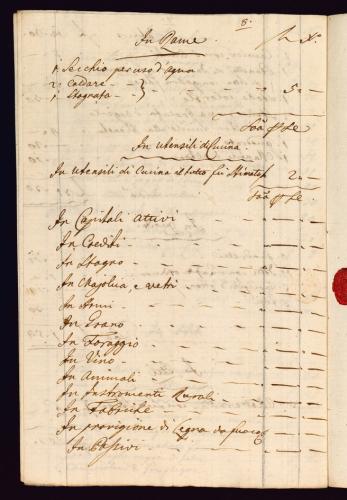 8.
In Rame
1. Secchio per uso d'aqua
2. Caldare - - } 5 - -
1. Stagnata - -
In Utensili di Cucina
In utensili di Cucina il tutto fù 2 - -
In Capitali attivi - - - -
In Crediti - - - -
In Stagno - - - -
In Majolica, e vetri - - -
In Armi - - - -
In Grano - - - -
In Foraggio - - - -
In Vino - - - -
In Animali - - - -
In Instromenti Rurali - - -
In Fabriche - - - -
In provigione di Legna da fuoco
In Passivi - - - -